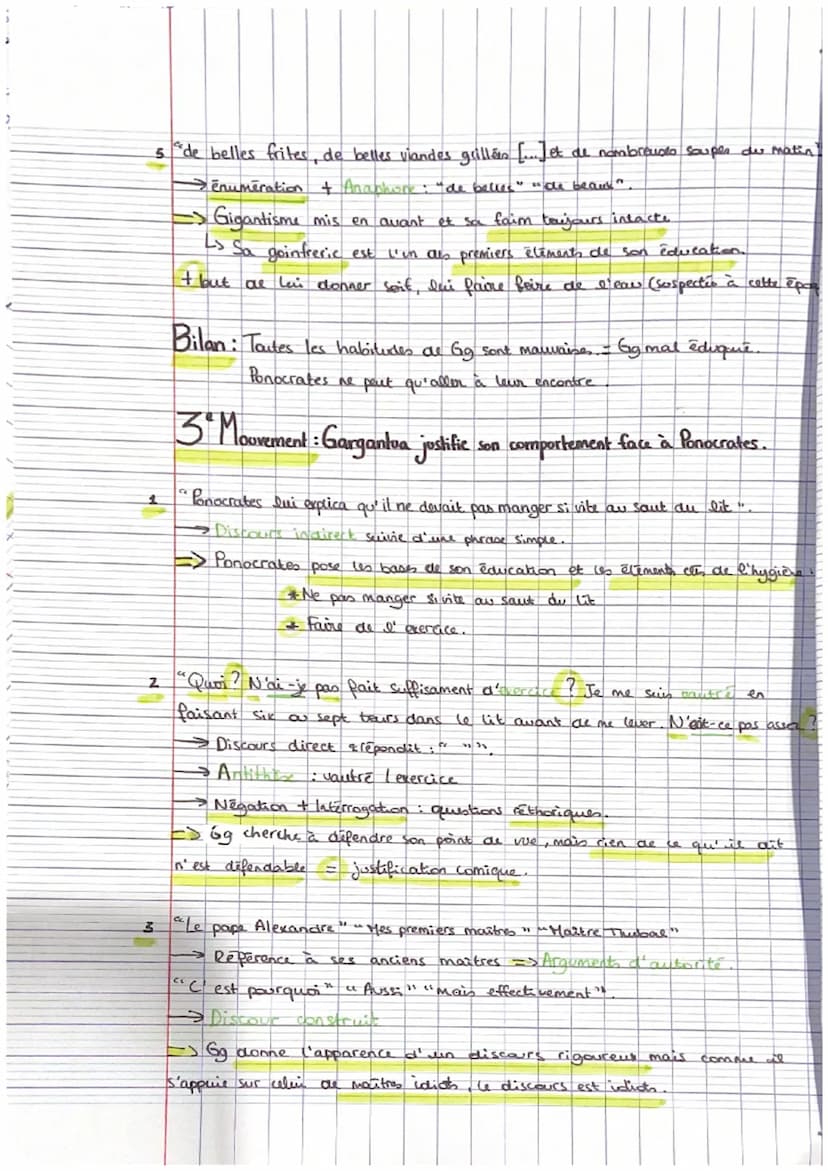 5 "de belles frites, de belles viandes grillées [...] et de nombreuses soupes du matin"
→ Énumération + Anaphore : "de belles" "de beaux".
=> Gigantisme mis en avant et sa faim toujours intacte
↳ Sa goinfrerie est l'un des premiers éléments de son éducation.
+ but de lui donner soif, lui faire boire de l'eau (suspectée à cette époq
Bilan : Toutes les habitudes de Gg sont mauvaises. = Gg mal éduqué.
Ponocrates ne peut qu'aller à leur encontre.
3e Mouvement : Gargantua justifie son comportement face à Ponocrates.
1 "Ponocrates lui explica qu'il ne devait pas manger si vite au saut du lit".
→ Discours indirect suivie d'une phrase simple.
=> Ponocrates pose les bases de son éducation et les éléments clés de l'hygiène :
* Ne pas manger si vite au saut du lit
* Faire de l'exercice.
2 "Quoi ? N'ai-je pas fait suffisament d'exercice ? Je me suis vautré en
faisant six ou sept tours dans le lit avant de me lever. N'est-ce pas assez ?
→ Discours direct : répondit : " "".
→ Antithèse : vautré / exercice
→ Négation + Interrogation : questions réthoriques.
=> Gg cherche à défendre son point de vue, mais rien de ce qu'il dit
n'est défendable = justification comique.
3 "Le pape Alexandre" "Mes premiers maîtres" "Maître Thubal"
→ Référence à ses anciens maîtres => Arguments d'autorité.
"C'est pourquoi" "Aussi" "Mais effectivement".
→ Discour construit
=> Gg donne l'apparence d'un discours rigoureux mais comme il
s'appuie sur celui de maîtres idiots, le discours est idiot.